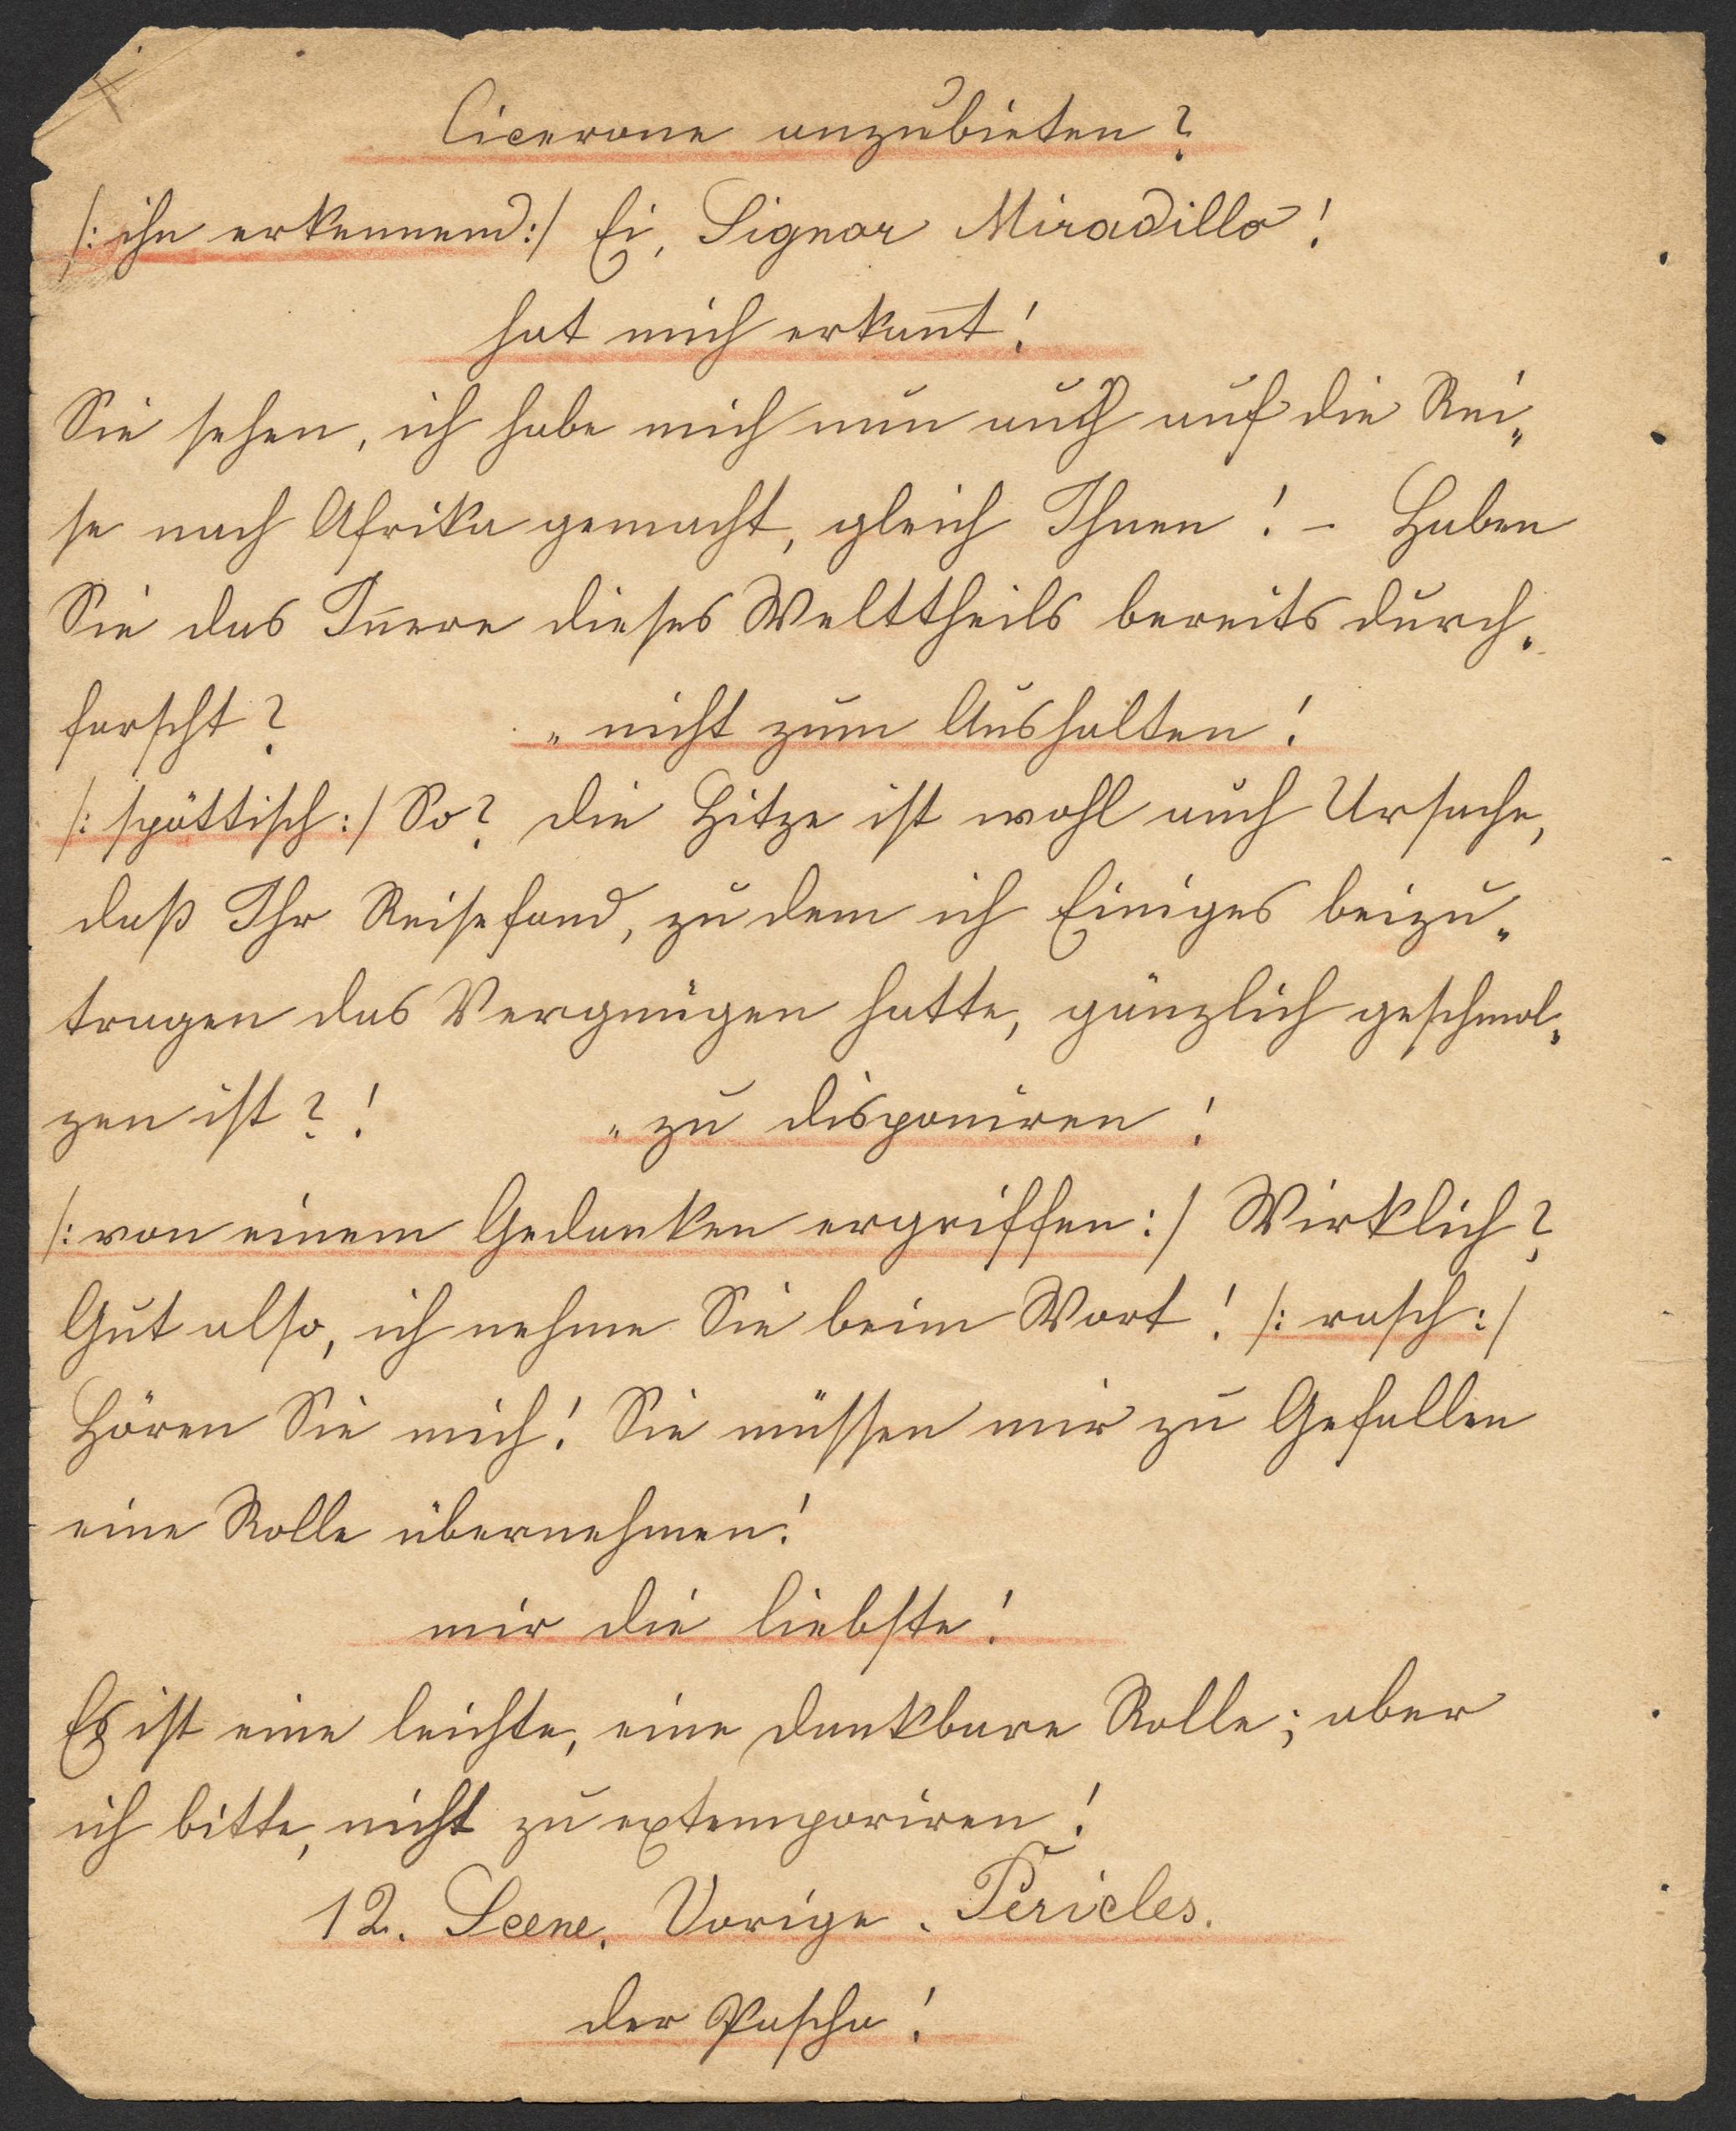 Cicerone anzubieten?
/: ihn erkennend :/ Ei, Signor Miradillo!
hat mich erkan̄t!
Sie sehen, ich habe mich nun auch auf die Rei„
se nach Afrika gemacht, gleich Ihnen! – Haben
Sie das In̄ere dieses Welttheils bereits durch„
forscht? „ nicht zum Aushalten!
/: spöttisch :/ So? die Hitze ist wohl auch Ursache,
daß Ihr Reisefond, zu dem ich Einiges beizu„
tragen das Vergnügen hatte, gänzlich geschmol„
zen ist?! „ zu disponiren!
/: von einem Gedanken ergriffen :/ Wirklich?
Gut also, ich nehme Sie beim Wort! /: rasch :/
Hören Sie mich! Sie müssen mir zu Gefallen
eine Rolle übernehmen!
mir die liebste!
Es ist eine leichte, eine dankbare Rolle; aber
ich bitte, nicht zu extemporiren!
12. Scene. Vorige. Pericles.
der Pascha!